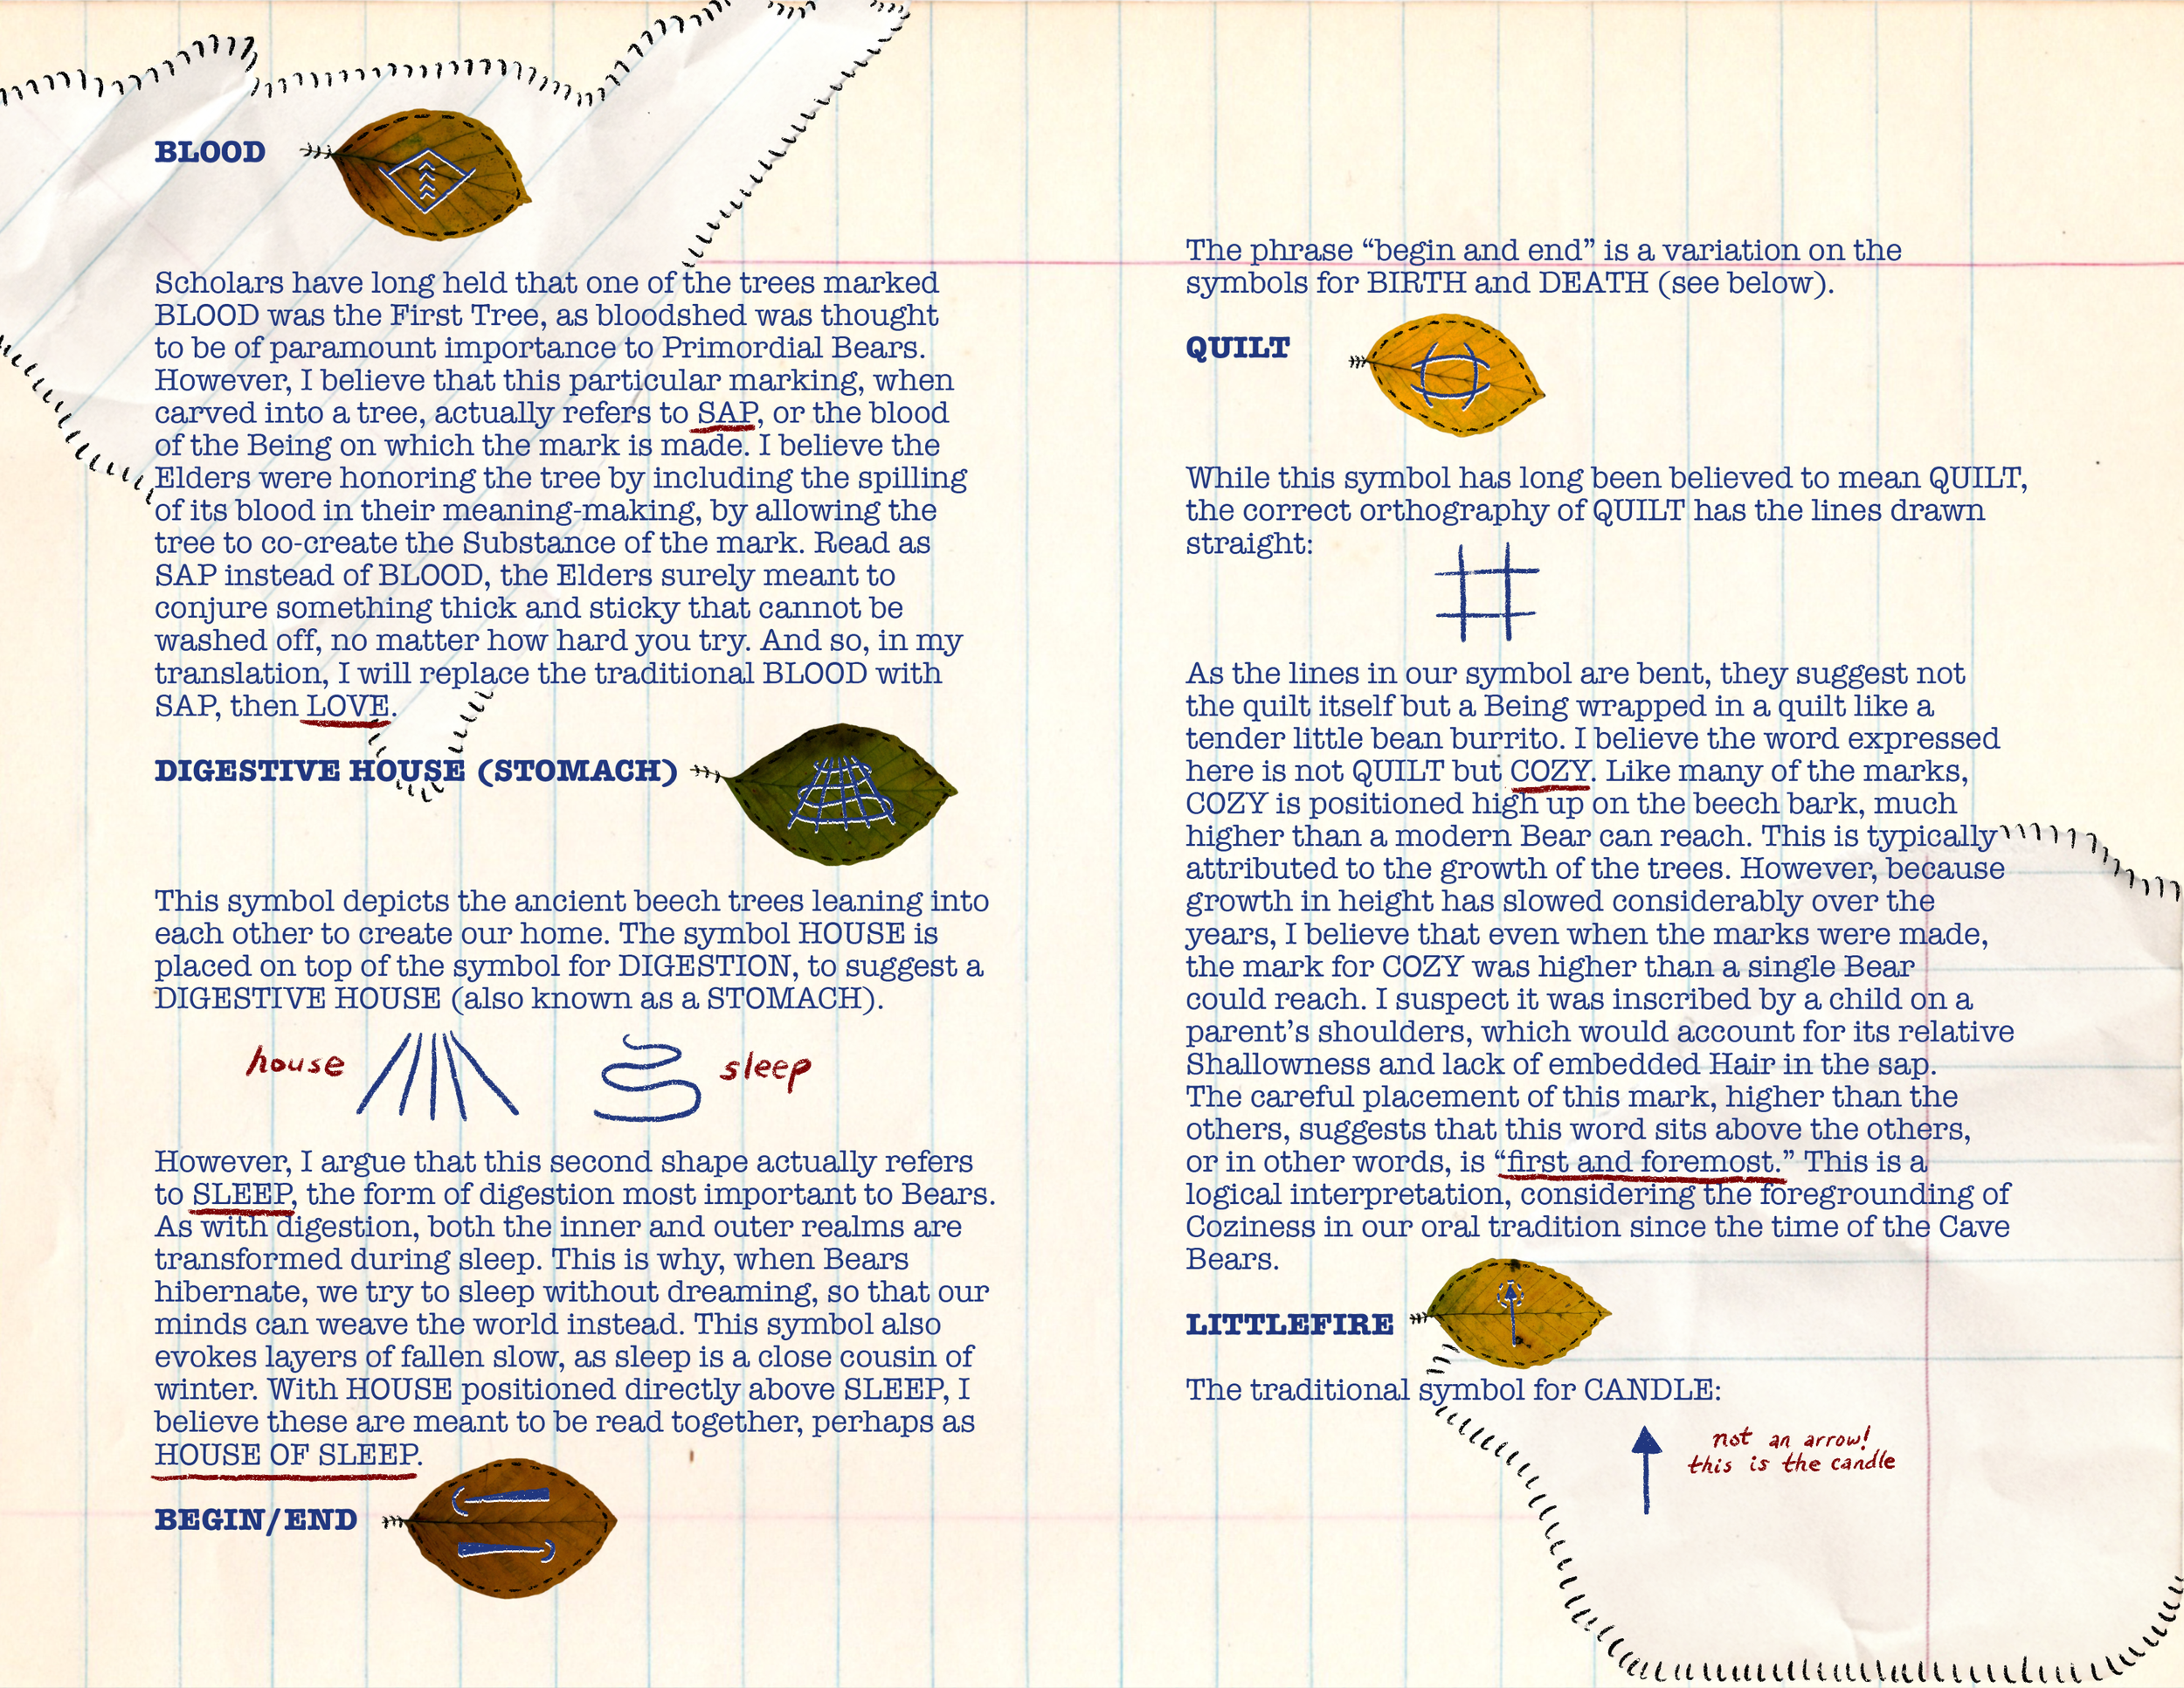 BLOOD
Scholars have long held that one of the trees marked
BLOOD was the First Tree, as bloodshed was thought
to be of paramount importance to Primordial Bears.
However, I believe that this particular marking, when
carved into a tree, actually refers to SAP, or the blood
of the Being on which the mark is made. I believe the
Elders were honoring the tree by including the spilling
of its blood in their meaning-making, by allowing the
tree to co-create the Substance of the mark. Read as
SAP instead of BLOOD, the Elders surely meant to
conjure something thick and sticky that cannot be
washed off, no matter how hard you try. And so, in my
translation, I will replace the traditional BLOOD with
SAP, then LOVE.
DIGESTIVE HOUSE (STOMACH)
This symbol depicts the ancient beech trees leaning into
each other to create our home. The symbol HOUSE is
placed on top of the symbol for DIGESTION, to suggest a
DIGESTIVE HOUSE (also known as a STOMACH).
house sleep
However, I argue that this second shape actually refers
to SLEEP, the form of digestion most important to Bears.
As with digestion, both the inner and outer realms are
transformed during sleep. This is why, when Bears
hibernate, we try to sleep without dreaming, so that our
minds can weave the world instead. This symbol also
evokes layers of fallen slow, as sleep is a close cousin of
winter. With HOUSE positioned directly above SLEEP, I
believe these are meant to be read together, perhaps as
HOUSE OF SLEEP.
BEGIN/END
The phrase “begin and end” is a variation on the
symbols for BIRTH and DEATH (see below).
QUILT
While this symbol has long been believed to mean QUILT,
the correct orthography of QUILT has the lines drawn
straight:
As the lines in our symbol are bent, they suggest not
the quilt itself but a Being wrapped in a quilt like a
tender little bean burrito. I believe the word expressed
here is not QUILT but COZY. Like many of the marks,
COZY is positioned high up on the beech bark, much
higher than a modern Bear can reach. This is typically
attributed to the growth of the trees. However, because
growth in height has slowed considerably over the
years, I believe that even when the marks were made,
the mark for COZY was higher than a single Bear
could reach. I suspect it was inscribed by a child on a
parent’s shoulders, which would account for its relative
Shallowness and lack of embedded Hair in the sap.
The careful placement of this mark, higher than the
others, suggests that this word sits above the others,
or in other words, is “first and foremost.” This is a
logical interpretation, considering the foregrounding of
Coziness in our oral tradition since the time of the Cave
Bears.
LITTLEFIRE
The traditional symbol for CANDLE:
not an arrow!
this is the candle